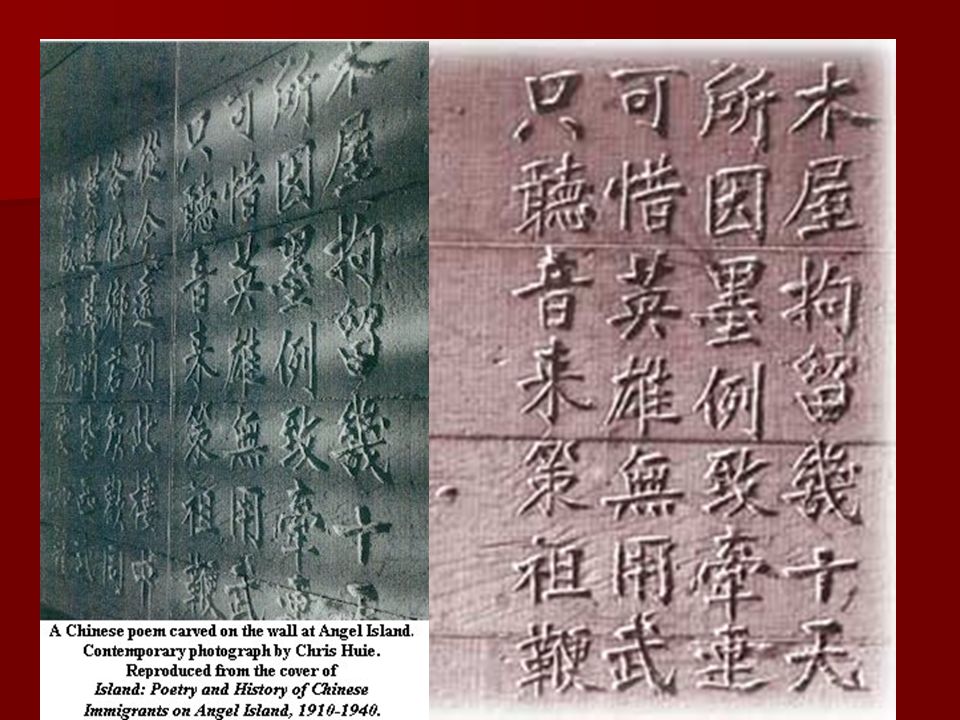 木屋拘留幾十天
所因墨例致牽連
可惜英雄無用武
只聽音來策祖鞭
從今遠別此樓中
各位鄉君眾歡同
A Chinese poem carved on the wall at Angel Island.
Contemporary photograph by Chris Huie.
Reproduced from the cover of
Island: Poetry and History of Chinese
Immigrants on Angel Island, 1910-1940.
木屋拘留幾十天
所因墨例致牽連
可惜英雄無用武
只聽音來策祖鞭